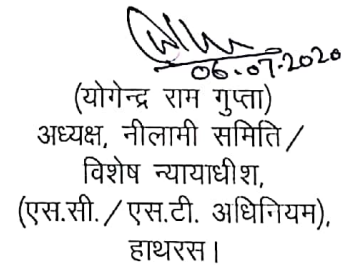 06.07.2020
(योगेन्द्र राम गुप्ता)
अध्यक्ष, नीलामी समिति /
विशेष न्यायाधीश,
(एस.सी. / एस.टी. अधिनियम),
हाथरस।